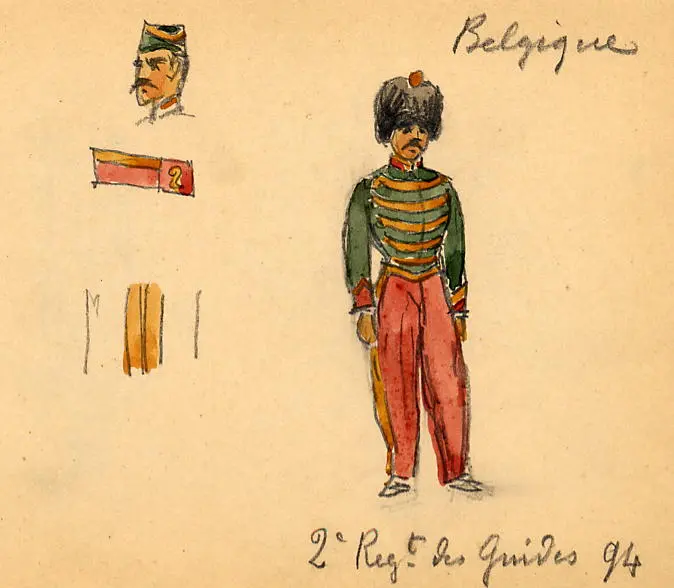 Belgique
2
2e Regt des Guides 94